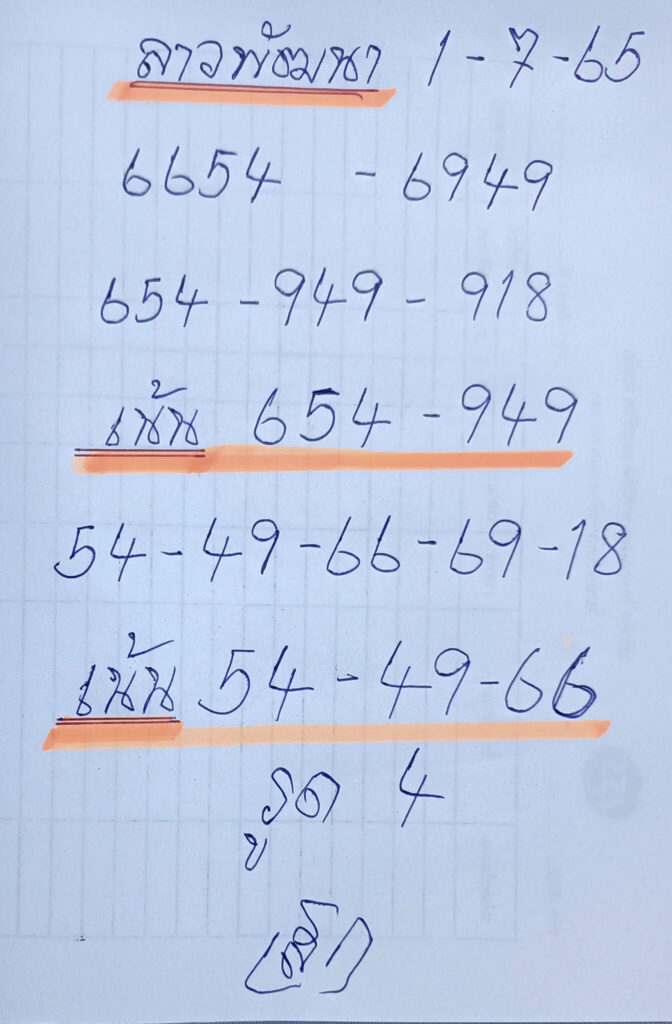 ลาวพัฒนา 1-7-65
6654 - 6949
654 - 949 - 918
เน้น 654 - 949
54 - 49 - 66 - 69 - 18
เน้น 54 - 49 - 66
รูด 4